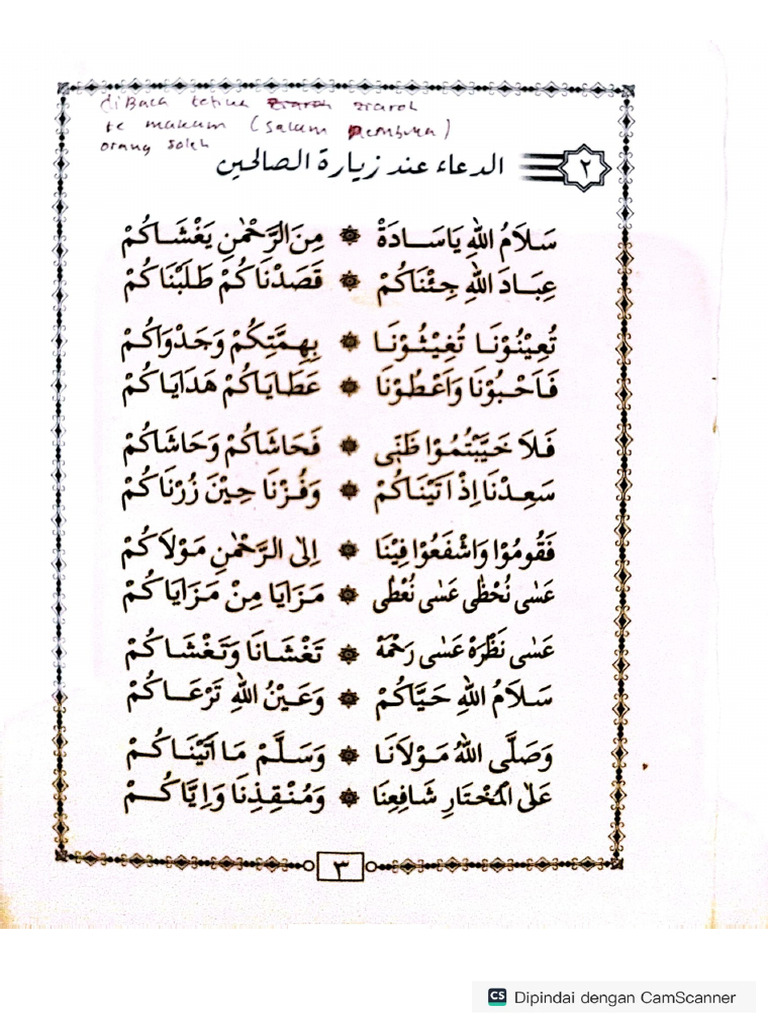 diBaca ketika ziaroh ziaroh
ke makam (Salam Pembuka)
orang soleh
٢ الدعاء عند زيارة الصالحين
سَلَامُ اللهِ يَاسَادَةْ ۞ مِنَ الرَّحْمٰنِ يَغْشَاكُمْ
عِبَادَ اللهِ جِئْنَاكُمْ ۞ قَصَدْنَاكُمْ طَلَبْنَاكُمْ
تُعِيْنُوْنَا تُغِيْثُوْنَا ۞ بِهِمَّتِكُمْ وَجَدْوَاكُمْ
فَاَحْبُوْنَا وَاَعْطُوْنَا ۞ عَطَايَاكُمْ هَدَايَاكُمْ
فَلاَ خَيَّبْتُمُوْا ظَنِّى ۞ فَحَاشَاكُمْ وَحَاشَاكُمْ
سَعِدْنَا اِذْ اَتَيْنَاكُمْ ۞ وَفُزْنَا حِيْنَ زُرْنَاكُمْ
فَقُومُوْا وَاشْفَعُوْا فِيْنَا ۞ اِلَى الرَّحْمٰنِ مَوْلاَكُمْ
عَسٰى نُحْظٰى عَسٰى نُعْطٰى ۞ مَزَايَا مِنْ مَزَايَاكُمْ
عَسٰى نَظْرَةْ عَسٰى رَحْمَةْ ۞ تَغْشَانَا وَتَغْشَاكُمْ
سَلاَمُ اللهِ حَيَّاكُمْ ۞ وَعَيْنُ اللهِ تَرْعَاكُمْ
وَصَلَّى اللهُ مَوْلاَنَا ۞ وَسَلَّمْ مَا اَتَيْنَاكُمْ
عَلَى الْمُخْتَارِ شَافِعِنَا ۞ وَمُنْقِذِنَا وَاِيَّاكُمْ
٣
CS Dipindai dengan CamScanner